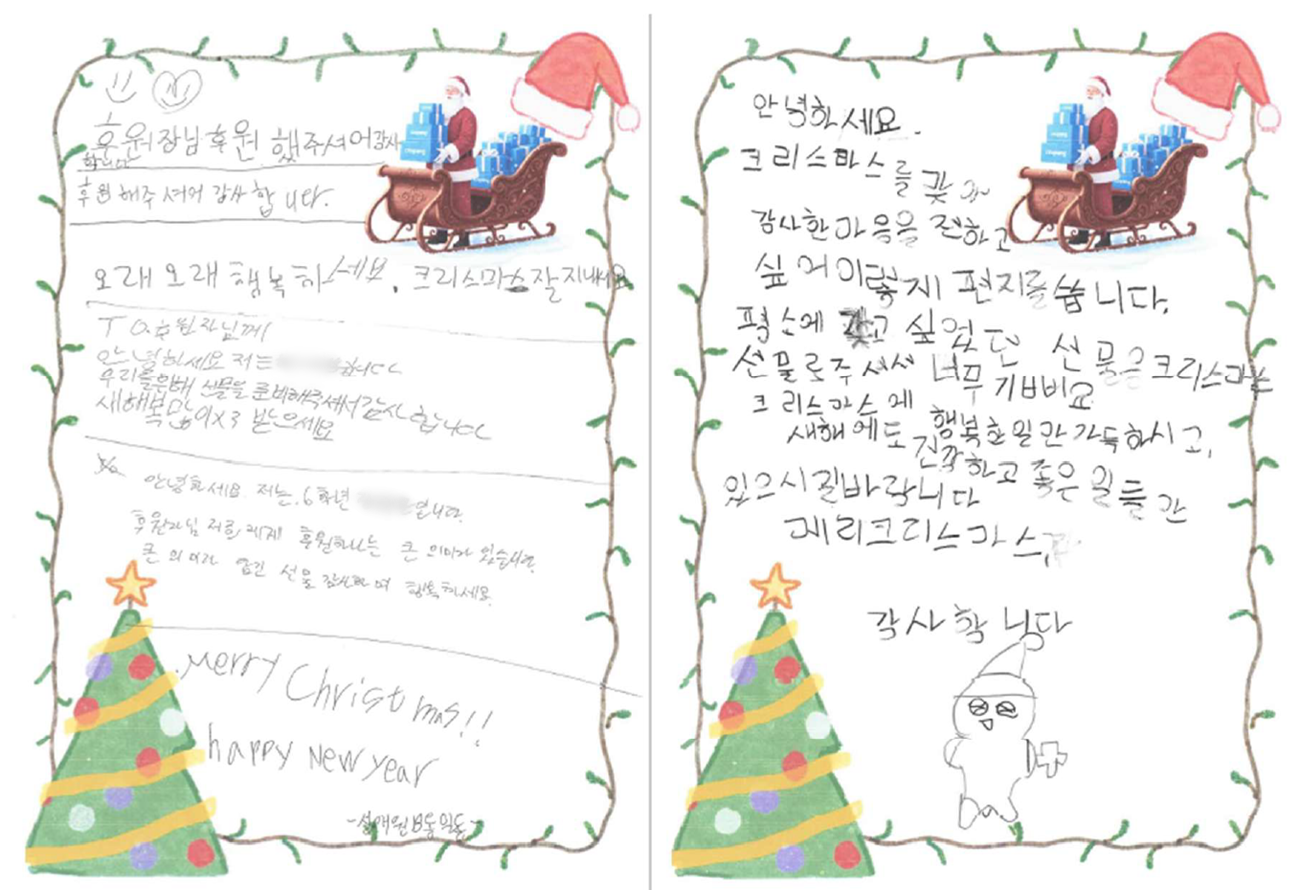 후원장님후원 했주셔어감사
합니다
후원 해주셔어 감사 합 니다.
오래오래 행복하세요. 크리스마스잘지내세요
To.후원자님께
안녕하세요 저는 입니다
우리를위해 선물을 준비해주셔서감사합니다
새해복많이x3 받으세요
안녕하세요. 저는 6학년 입니다.
후원자님 저희에게 후원하시는 큰 의미가 있습니다.
큰 의미가 담긴 선물 감사하며 행복하세요.
Merry Christmas!!
happy New year
안녕하세요.
크리스마스를 맞아
감사한마음을 전하고
싶어이렇게 편지를 씁니다.
평소에 갖고 싶었던 선물을크리스마스
선물로주셔서 너무 기뻐요
크리스마스에 행복한일만가득하시고,
새해에도 건강하고 좋은 일들만
있으시길바랍니다
메리크리스마스
감사합니다